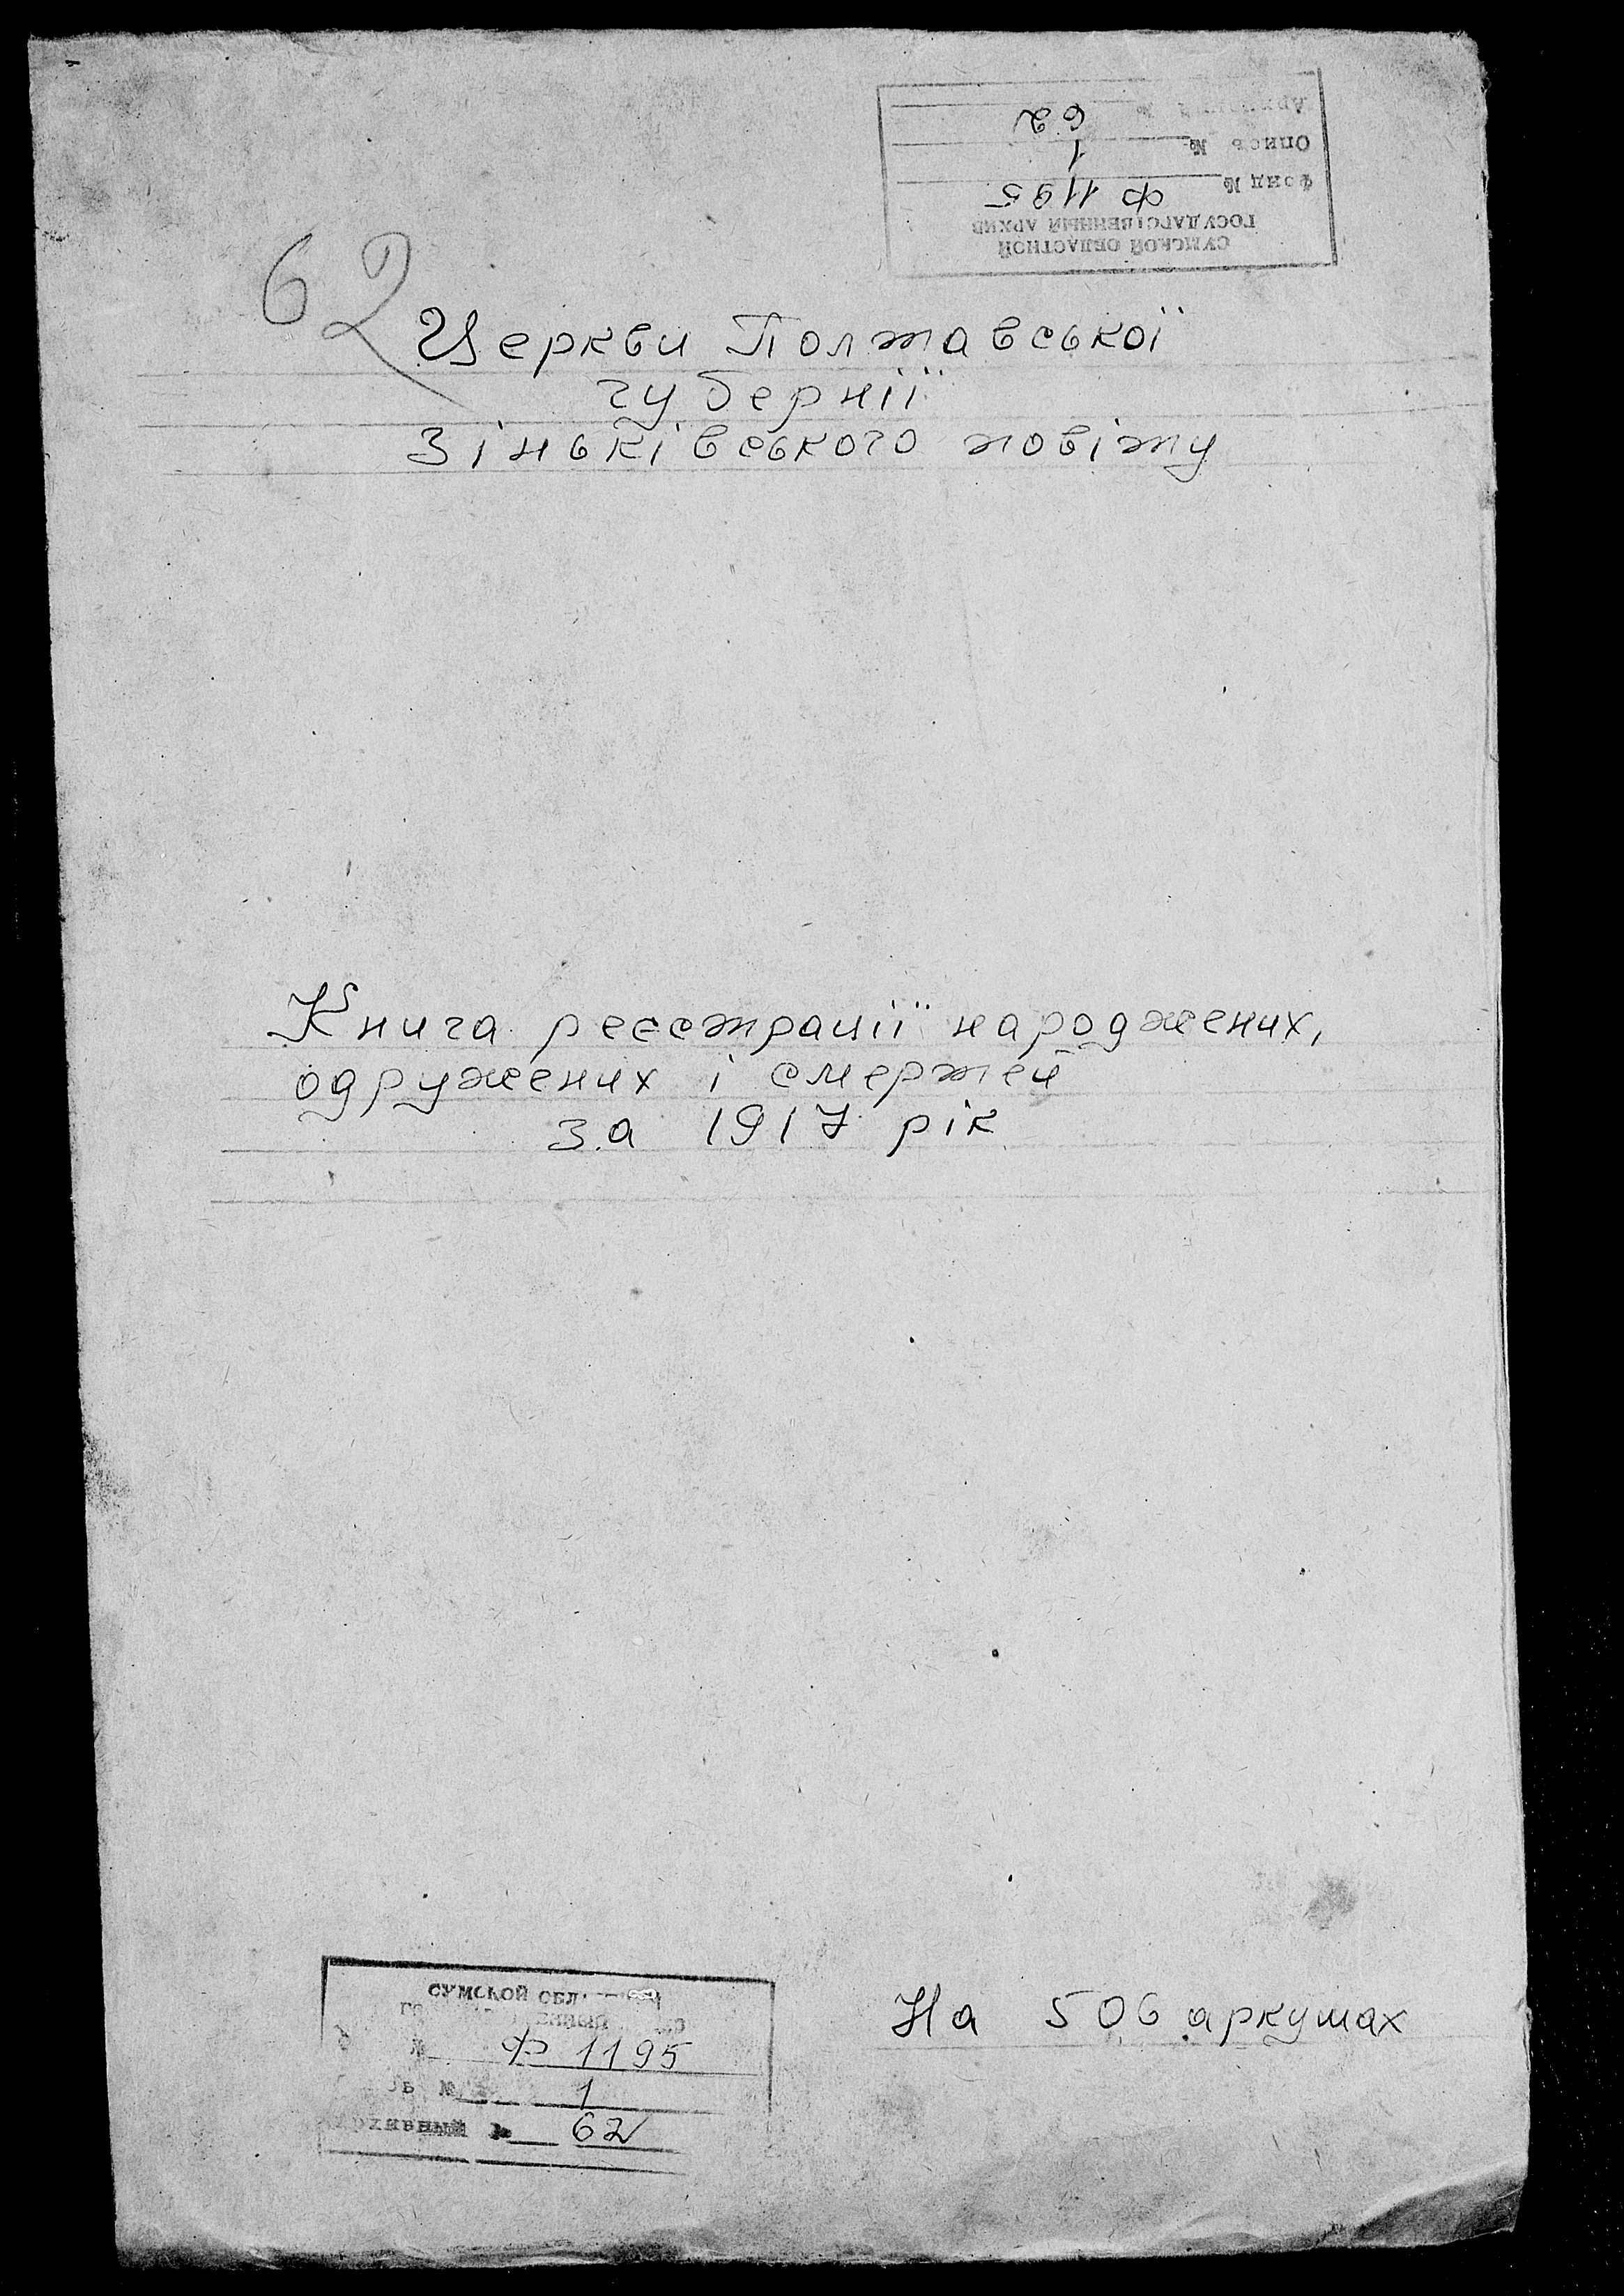 СУМСКОЙ ОБЛАСТНОЙ
ГОСУДАРСТВЕННЫЙ АРХИВ
Фонд № Ф 1195
Опись № 1
Архивный № 62
62
Церкви Полтавської
губернії
Зіньківського повіту
Книга реєстрації народжених,
одружених і смертей
за 1917 рік
На 506 аркушах
СУМСКОЙ ОБЛ
№ Ф 1195
№ 1
Архивный № 62